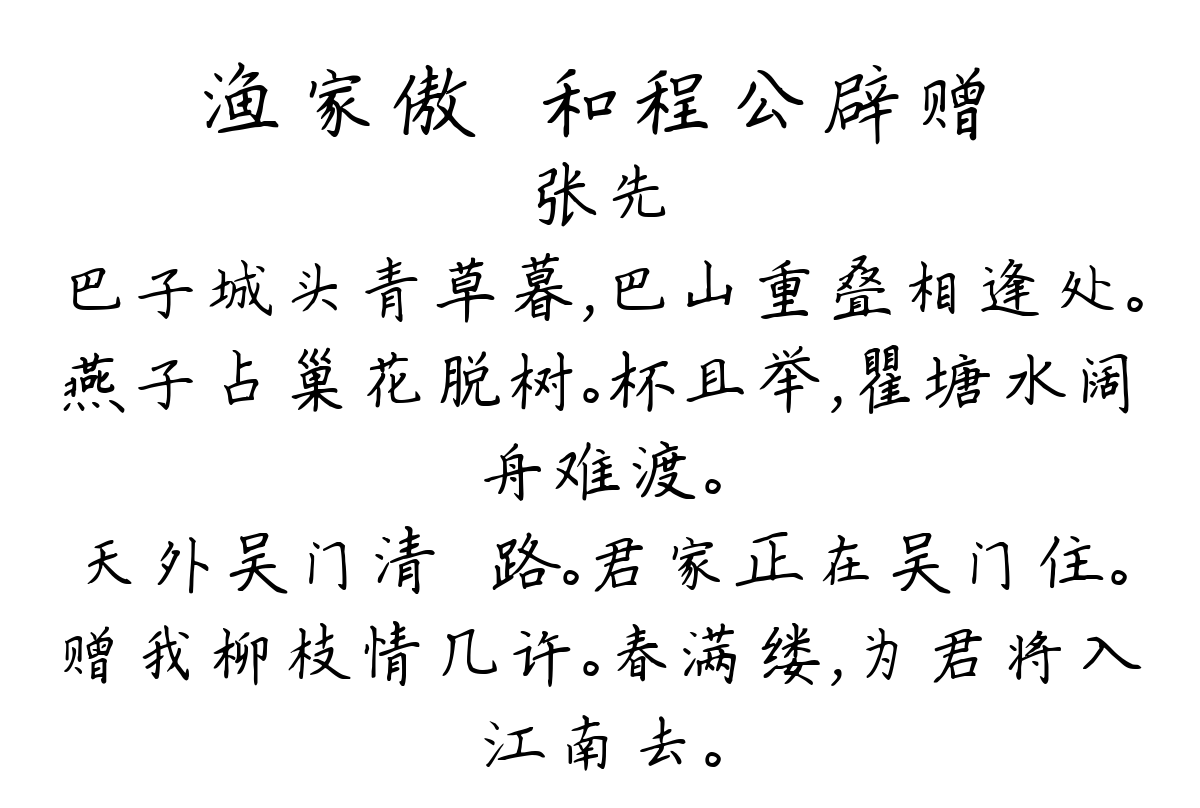 渔家傲 和程公辟赠
张先
巴子城头青草暮,巴山重叠相逢处。
燕子占巢花脱树。杯且举,瞿塘水阔
舟难渡。
天外吴门清 路。君家正在吴门住。
赠我柳枝情几许。春满缕,为君将入
江南去。